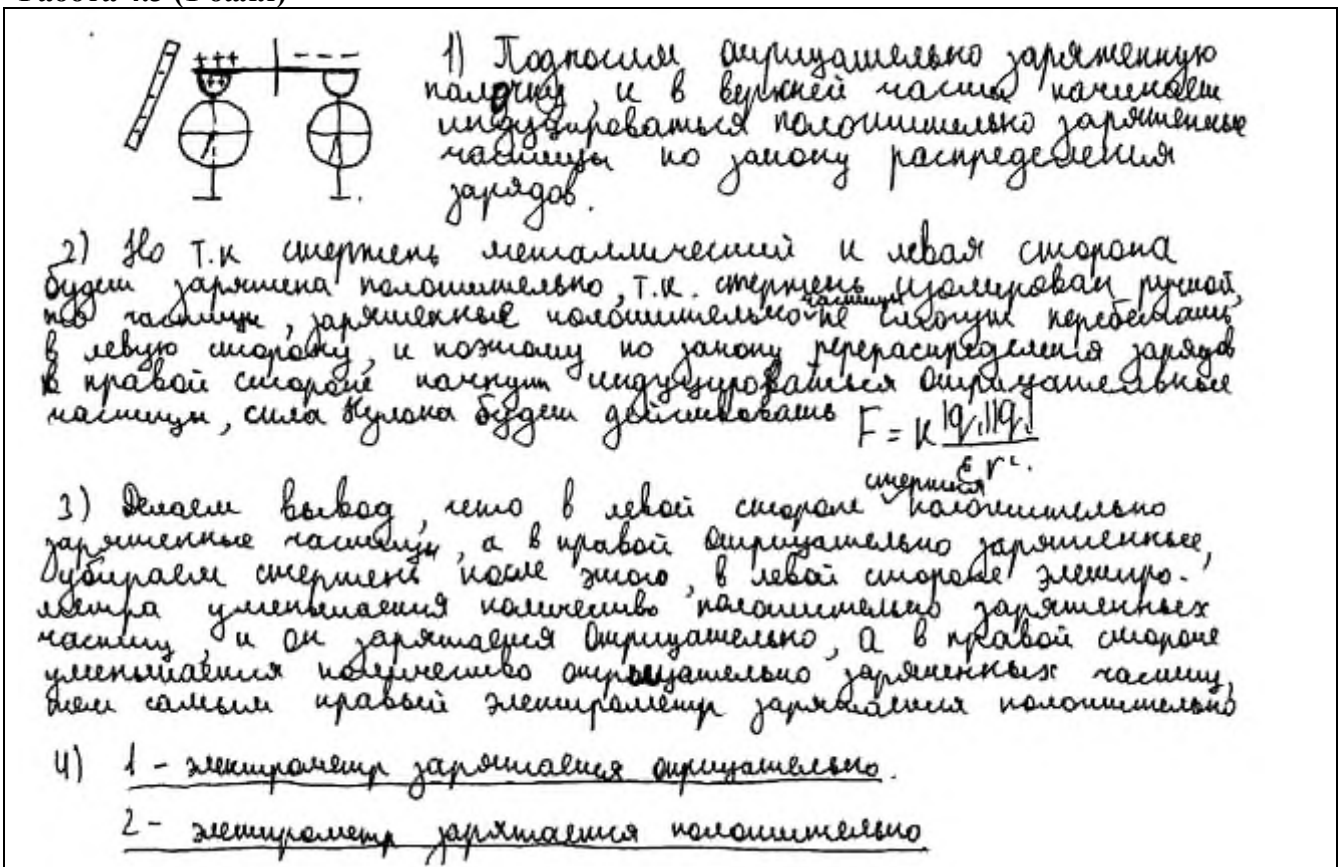 1) Подносим отрицательно заряженную
палочку, и в верхней части начинаем
индуцироваться положительно заряженные
частицы по закону распределения
зарядов.
+++ - - -
++
2) Но т.к стержень металлический и левая сторона
будет заряжена положительно, т.к. стержень изолирован ручкой,
то частицы, заряженные положительно частицы не смогут перебежать
в левую сторону, и поэтому по закону перераспределения зарядов
в правой стороне начнут индуцироваться отрицательные
частицы, сила Кулона будет действовать F = k |q₁||q₁| / ε r².
3) Делаем вывод, что в левой стороне стержня положительно
заряженные частицы, а в правой отрицательно заряженные,
убираем стержень после этого, в левой стороне электро-
метра уменьшается количество положительно заряженных
частиц, и он заряжается отрицательно, а в правой стороне
уменьшается количество отрицательно заряженных частиц,
тем самым правый электрометр заряжается положительно
4) 1 - электрометр заряжается отрицательно.
2 - электрометр заряжается положительно